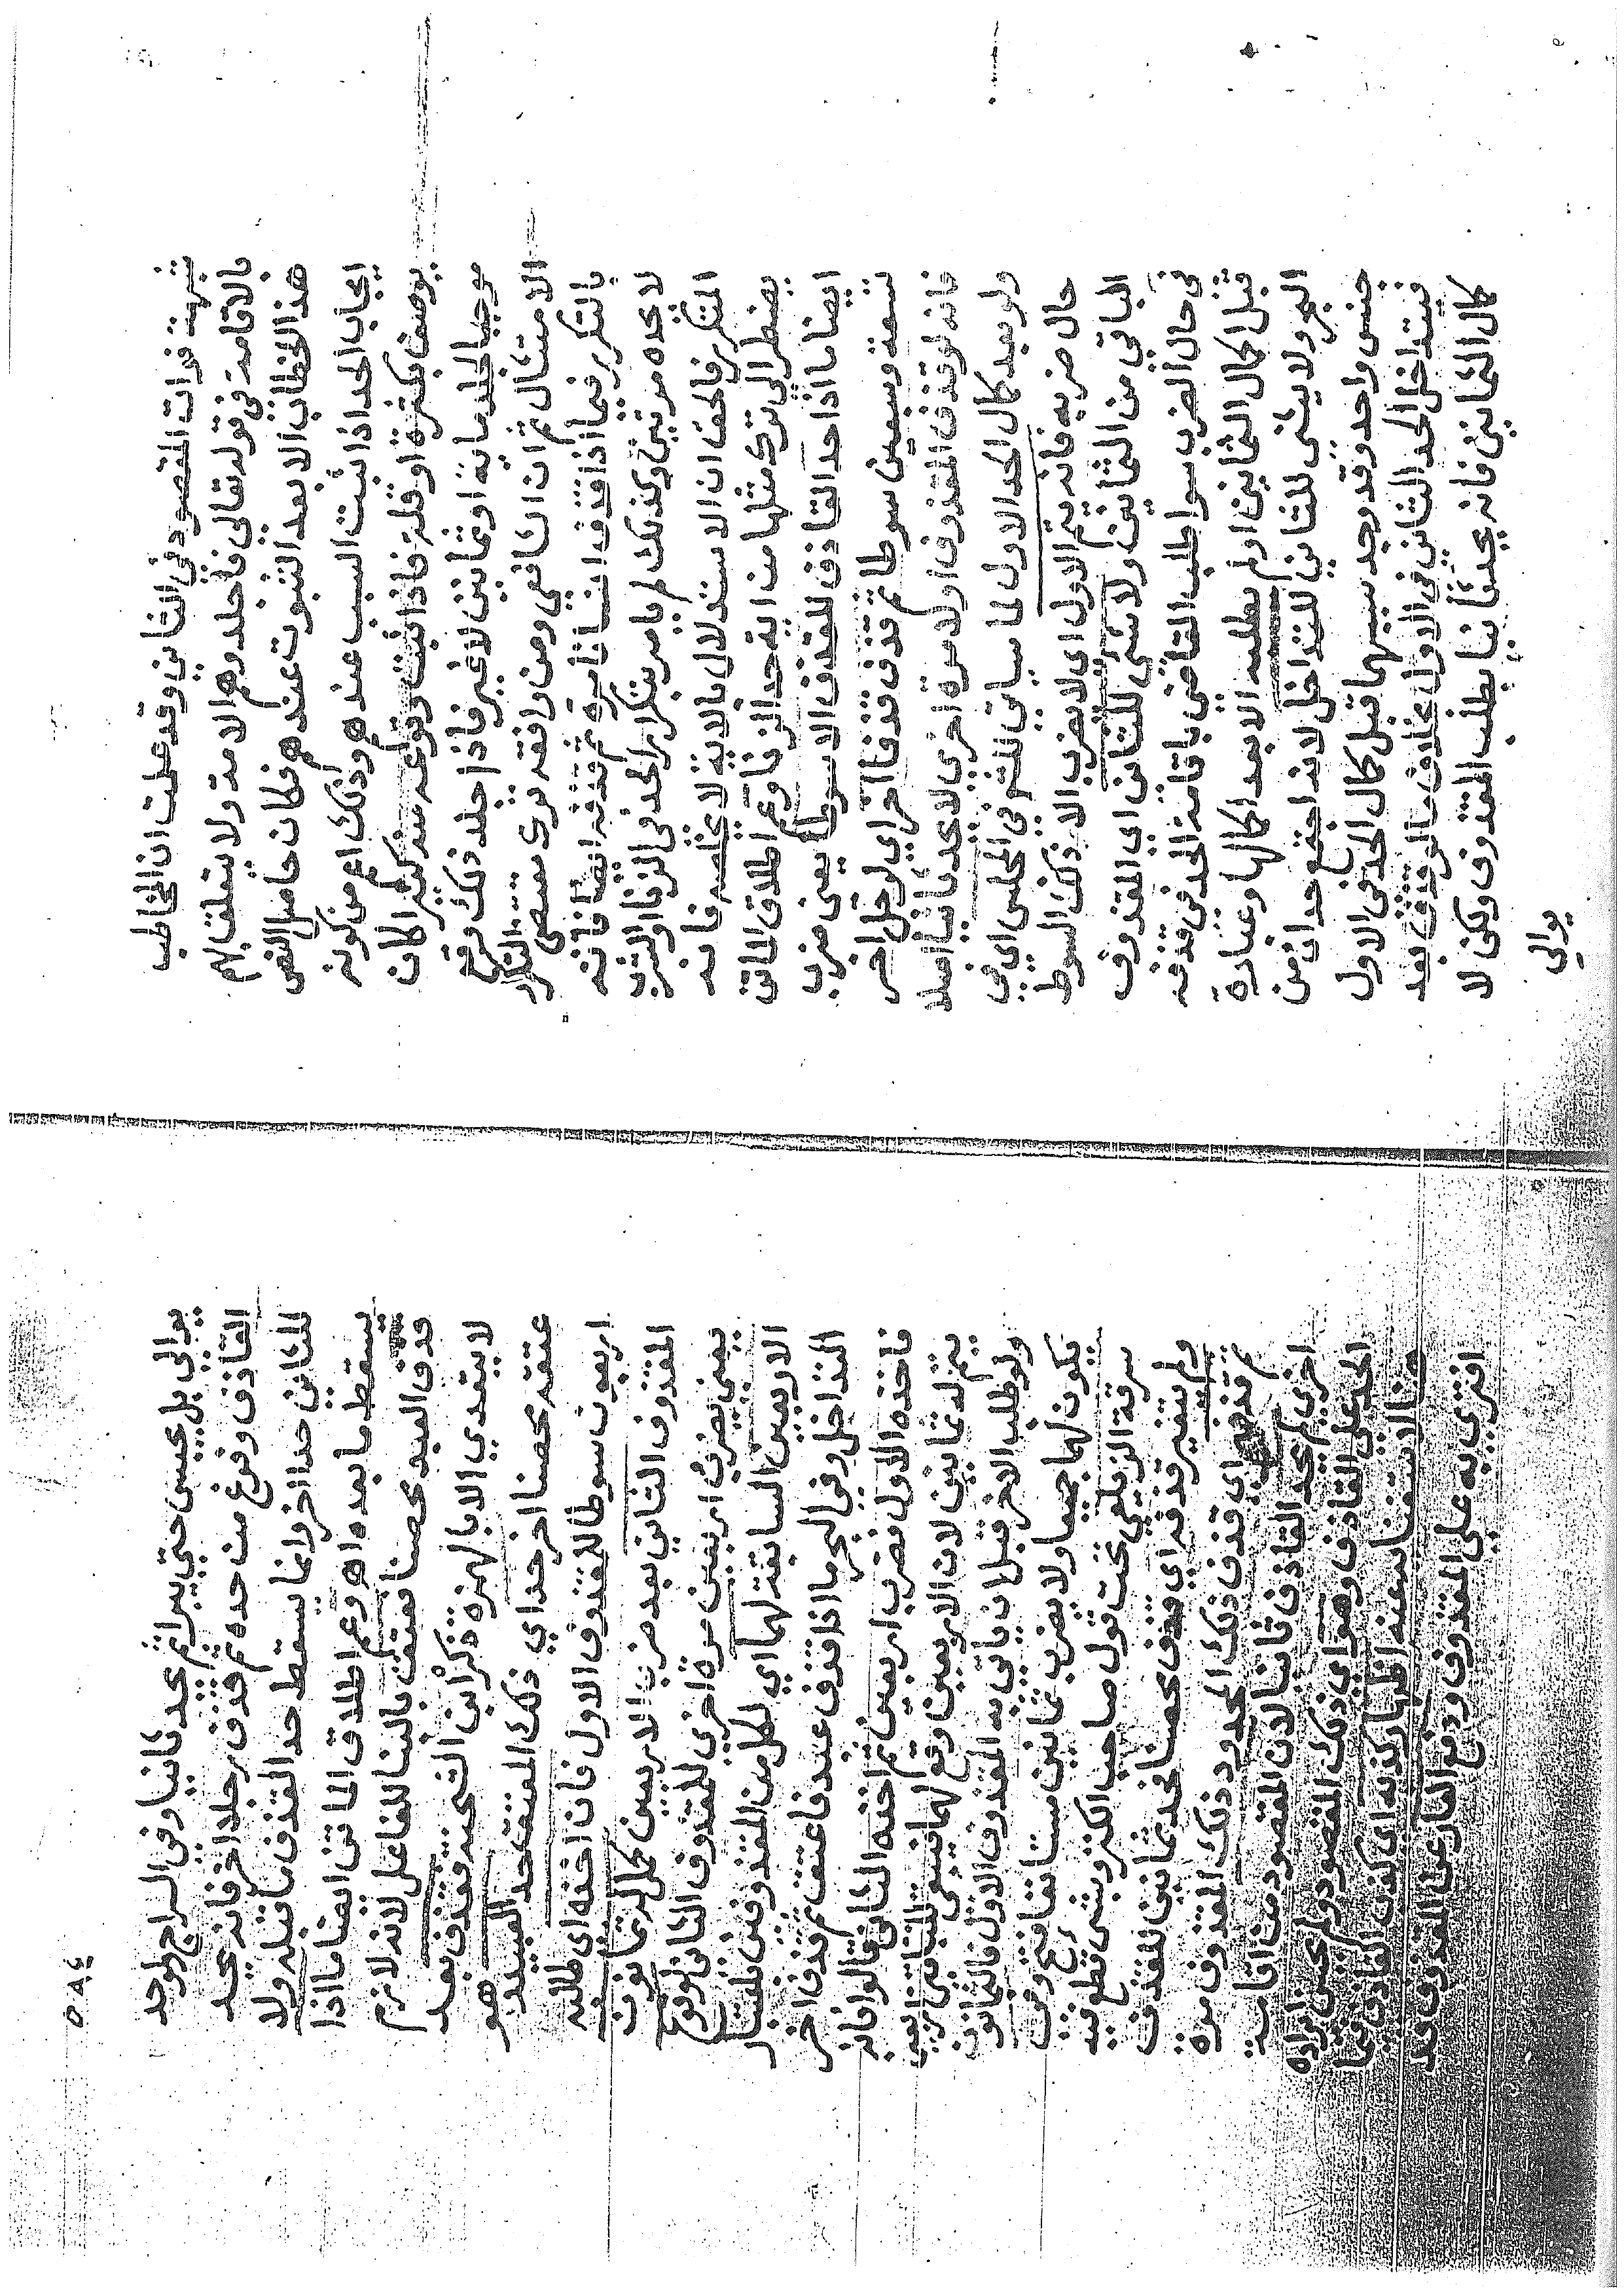 شبهة فوات المقصود في الثاني وقد علمت ان المخاطب
بالاقامة في قوله تعالى فاجلدوهم الامة ولا يتعلق بهم
هذا الخطاب الا بعد الثبوت عندهم فكان حاصل النص
ايجاب الحد اذا ثبت السبب عندهم وذلك اعم من كونه
يوصف بكثرة او قلة فاذا ثبت وقوعه منه كثيرا كان
موجبا لجلد مائة او ثمانين لا غير فاذا جلد ذلك وقع
الامتثال ثم ان الشافعي ومن وافقه ترك مقتضى التكرار
بالتكرر فيما اذا قذف انسانا مرة ثم قذفه ايضا فانه
لا يحده مرتين وكذلك لم يامر بتكرار الحد في الزنا والشرب
المتكرر فالحق ان الاستدلال بالاية لا يخلصه فانه
يضطر الى ترك مثلها من اية حد الزنا وعم اطلاق الماتن
ايضا ما اذا حد القاذف للقذف الا سوطا يعني ضرب
تسعة وسبعين سوطا ثم قذف قذفا اخر اي لرجل اخر
فانه لو قذف المقذوف اولا مرة اخرى لا يحد ثانيا اصلا
ولو بعد كمال الحد الاول لما سياتي للشرح في المجلس اي في
حال ضربه فانه يتم الاول اي لا يضرب الا ذلك السوط
الباقي من الثمانين ولا شيء للثاني اي المقذوف
في حال الضرب سوا طلب القاضي باقامة الحد في قذفه
قبل اكمال الثمانين او لم يطلبه الا بعد اكمالها وعبارة
البحر ولا شيء للثاني للتداخل لانه اجتمع حدان من
جنس واحد وقد وجد سببهما قبل كمال الحد في الاول
فيتداخل الحد الثاني في الاول بخلاف ما لو قذف بعد
كمال الثمانين فانه يحد ثانيا بطلب المقذوف ولكن لا
يوالى
٥٩٤
يوالي بل يحبس حتى يبرا ثم يحد ثانيا وفي السراج لو حد
القاذف وفرغ من حده ثم قذف رجلا اخر فانه يحد
للثاني حدا اخر وانما يسقط حد القذف ما قبله ولا
يسقط ما بعده اهـ وعم اطلاق الماتن ايضا ما اذا
قذف العبد محصنا فعتق بالبنا للفاعل لانه لازم
لا يتعدى الا بالهمزة ذكره ابن الشحنة فقذف بعد
عتقه محصنا اخر حد اي ذلك المعتق حد العبيد هو
اربعون سوطا للمقذوف الاول فان اخذه اي طالبه
المقذوف الثاني بعد ضرب الاربعين كمل له ثمانون
يعني يضرب اربعين مرة اخرى للمقذوف الثاني لوقوع
الاربعين السابقة لهما اي لكل من المقذوفين للتبار
التداخل وفي البحر ما اذا قذف عبد فاعتق ثم قذف اخر
فاخذه الاول فضرب اربعين ثم اخذه الثاني قالوا فانه
يتم له ثمانين لان الاربعين وقع لهما فيبقى للثاني اربعين
ولو طلب الاخر قبل ان ياتي به المقذوف الاول فالثمانون
يكون لهما جميعا ولا يضرب ثمانين مستانفا فتح وفي
سرقة الزيلعي تحت قول صاحب الكنز وبشيء قطع فيه
ولم يتغير قذفه اي قذف محصنا فحد ثمانين للقذف
ثم قذفه اي قذف ذلك المحدود ذلك المقذوف مرة
اخرى لم يحد القاذف ثانيا لان المقصود من اقامة
الحد على القاذف وهو اي ذلك المقصود ولم يحسن ايراده
هنا للاستغنا عنه اظهار كذبه اي كذب القاذف فيما
افترى به على المقذوف ودفع العار عن المقذوف قد